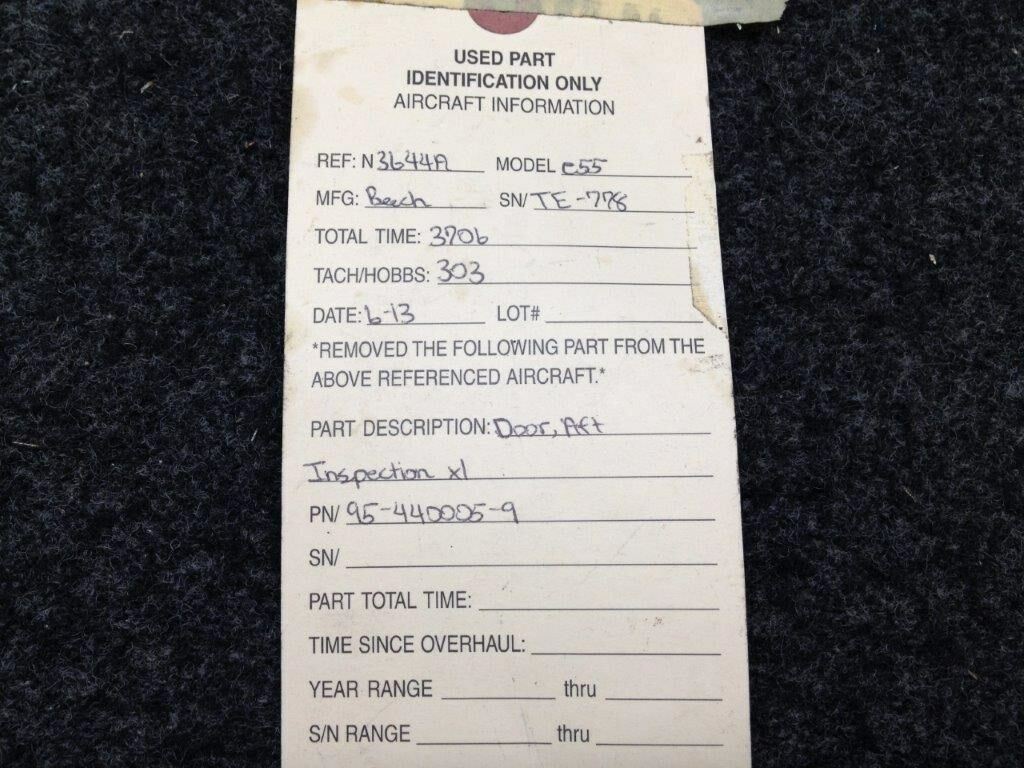 USED PART
IDENTIFICATION ONLY
AIRCRAFT INFORMATION
REF: N 3644A MODEL e55
MFG: Beech SN/ TE-778
TOTAL TIME: 3706
TACH/HOBBS: 303
DATE: 6-13 LOT#
*REMOVED THE FOLLOWING PART FROM THE
ABOVE REFERENCED AIRCRAFT.*
PART DESCRIPTION: Door, Aft
Inspection x1
PN/ 95-440005-9
SN/
PART TOTAL TIME:
TIME SINCE OVERHAUL:
YEAR RANGE thru
S/N RANGE thru